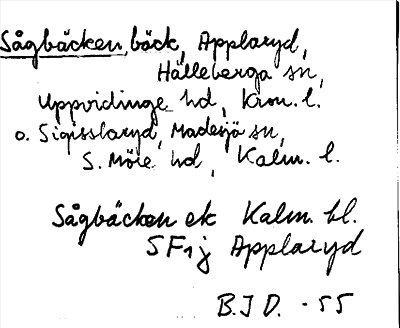 Sågbäcken, bäck, Applaryd,
Hälleberga sn,
Uppvidinge hd, Kron. l.
o. Sigisslaryd, Madesjö sn,
S. Möre hd, Kalm. l.
Sågbäcken ek Kalm. bl.
5F1j Applaryd
B.J D. -55